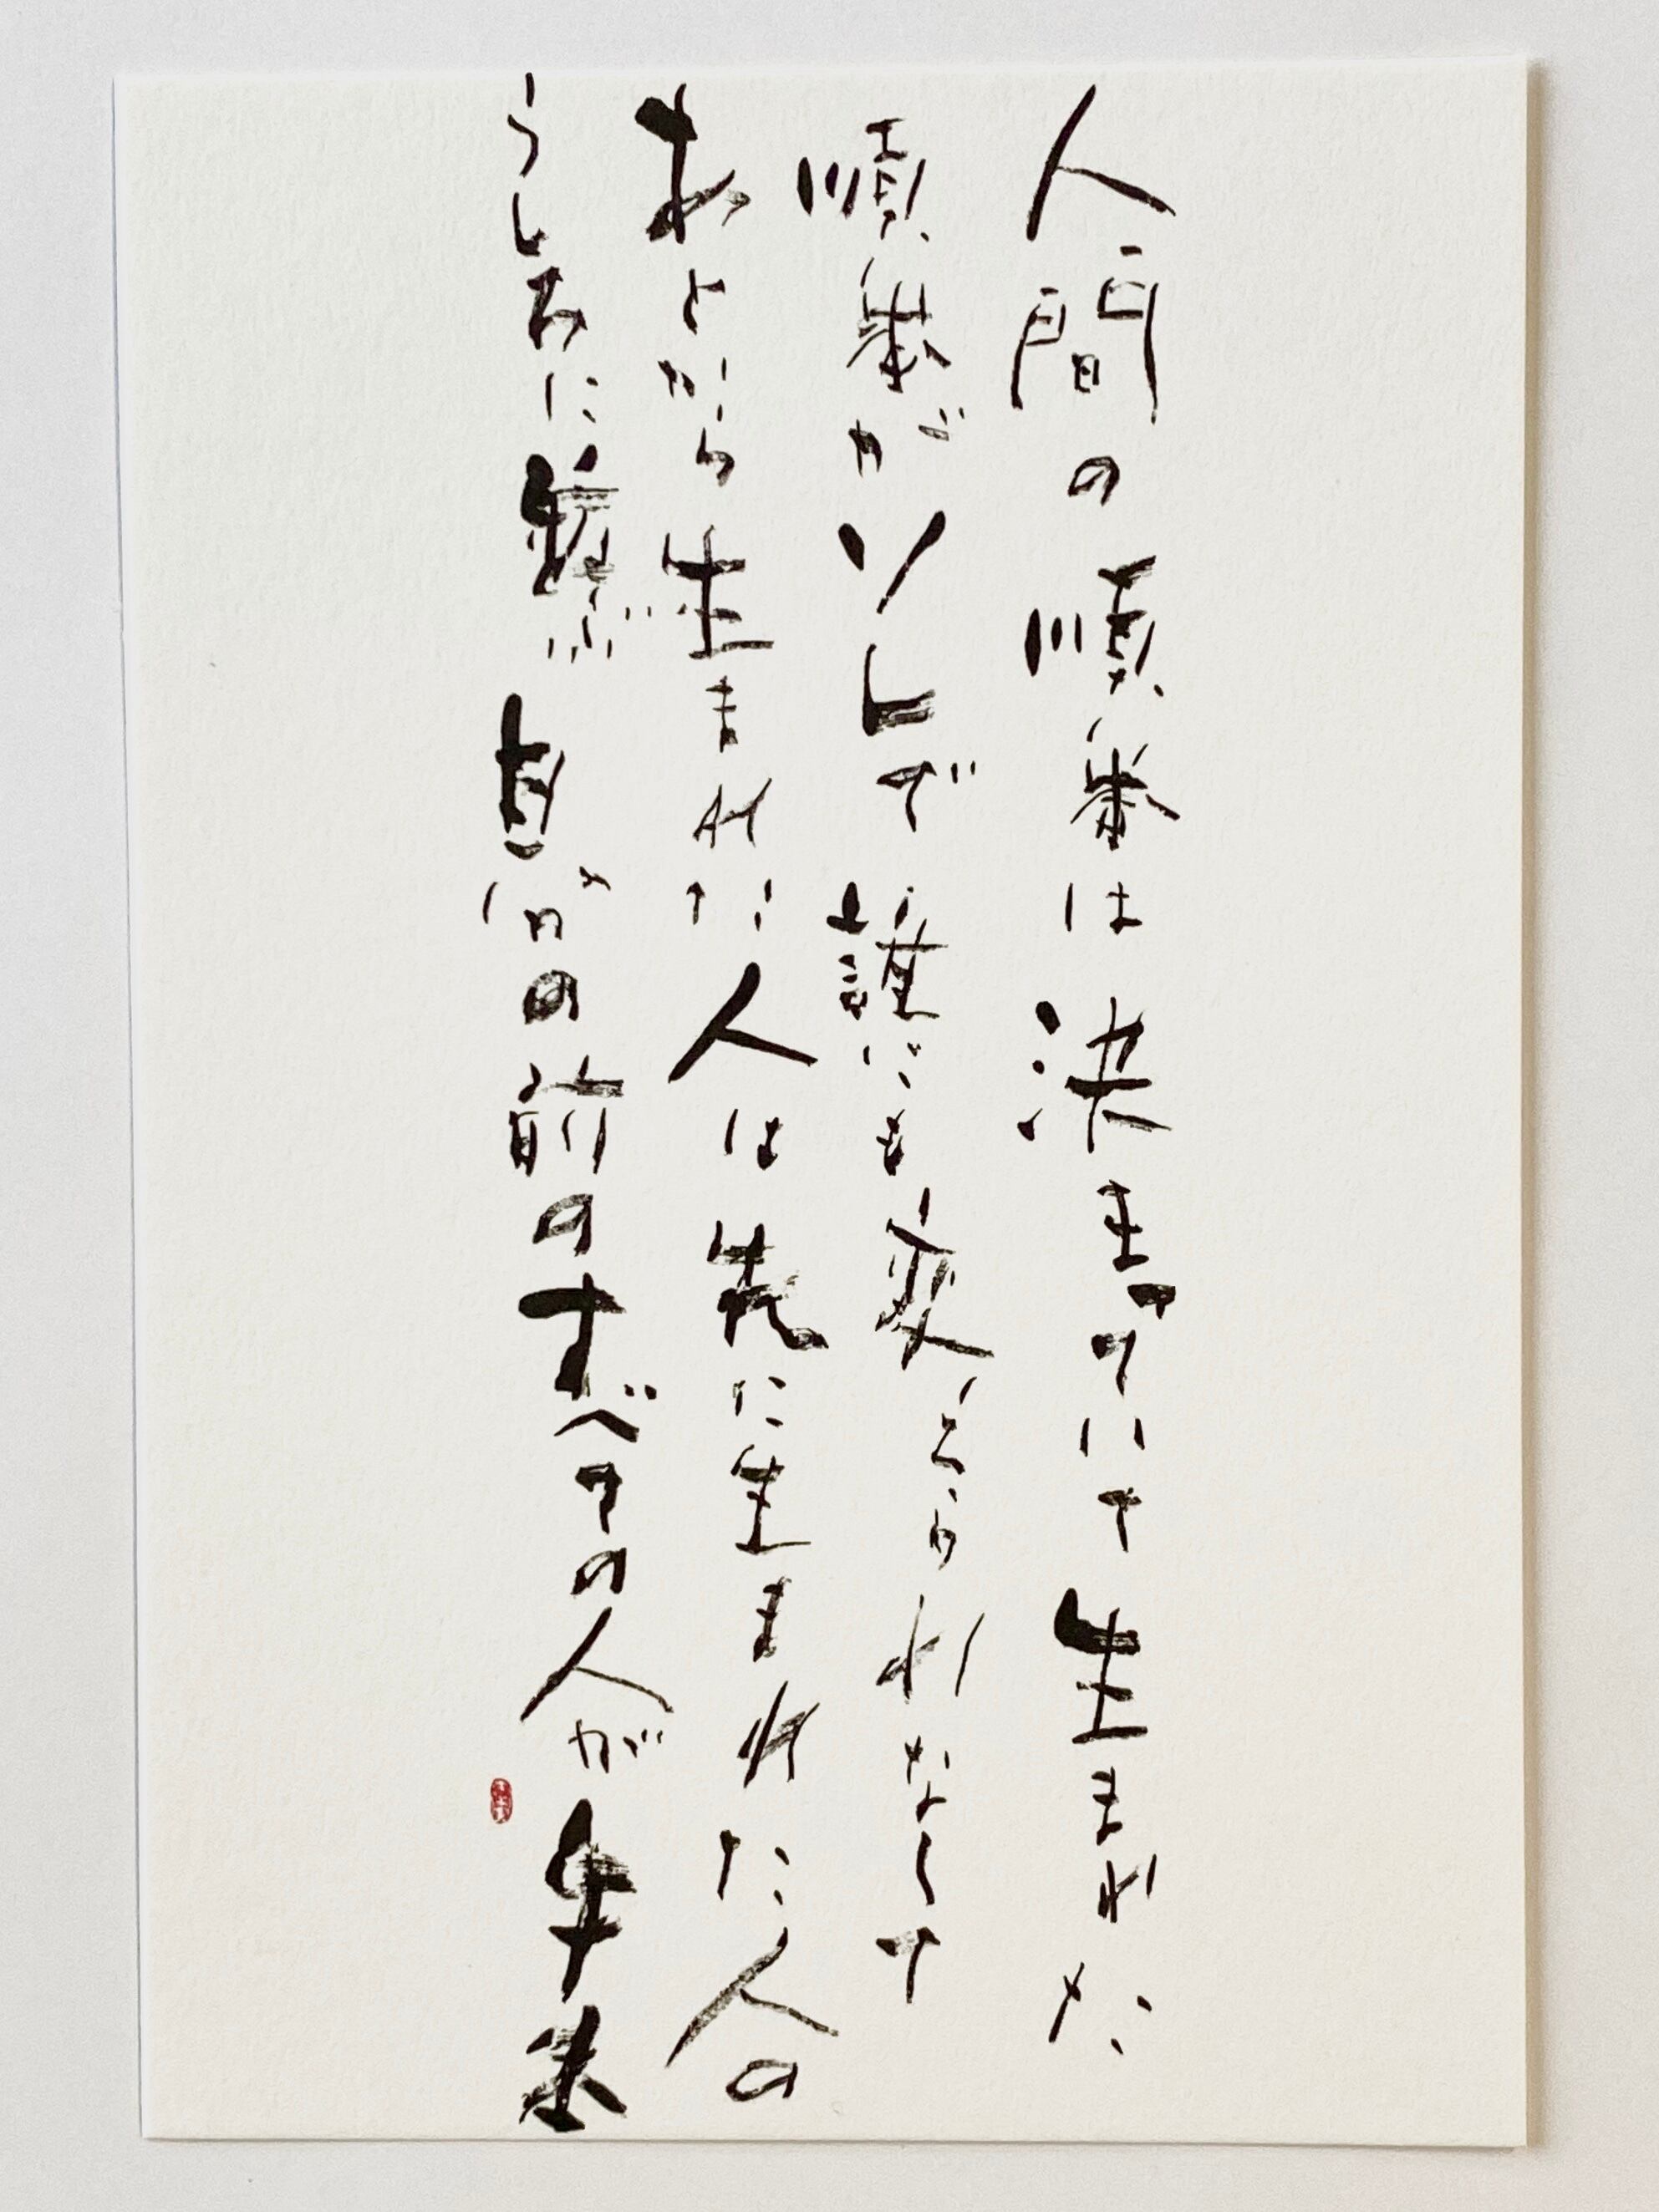 人間の順番は決まっていて生まれた
順番がソレで誰にも変えられなくて
あとから生まれた人は先に生まれた人の
うしろに の前のすべての人が